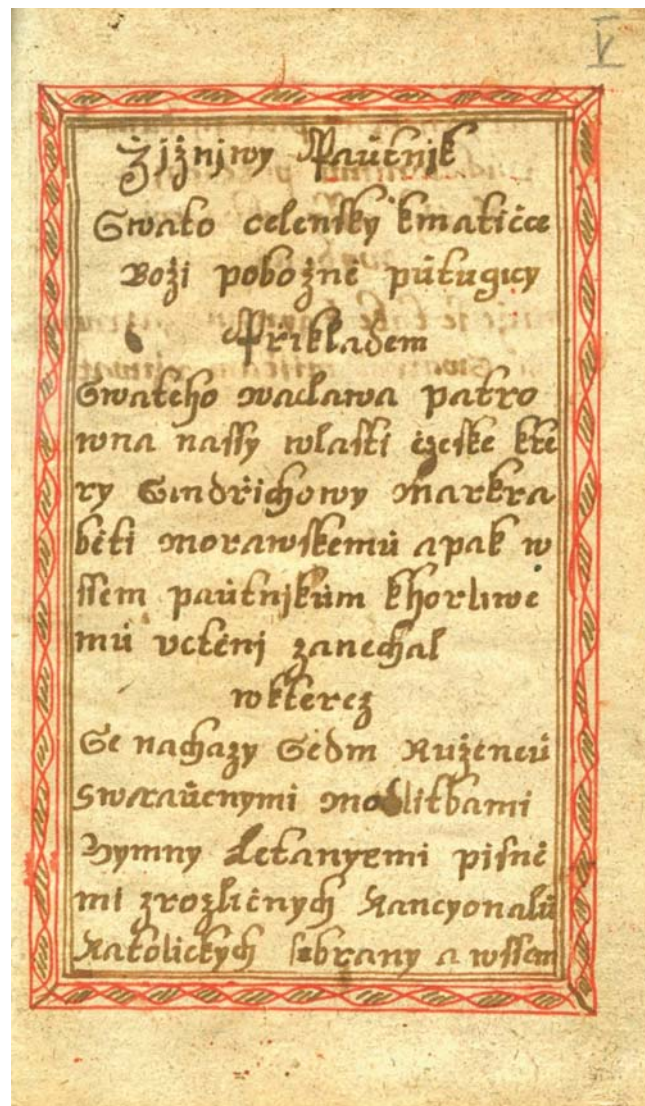 V
Žjžnjwy Pautnjk
Swato celensky kmatičce
Boži pobožně pütugicy
Přikladem
Swateho waclawa patro
wna nassy wlasti čzeske kte
ry Gindřichowy Markra
běti Morawskemü apak w
ssem pautnjkům khorliwe
mü vctěnj zanechal
wkterez
Se nachazy Sedm Ruženců
Swraucnymi Modlitbami
Hymny Letanyemi pisně
mi zrozličnych Kancyonalů
Katolickych sebrany a wssem